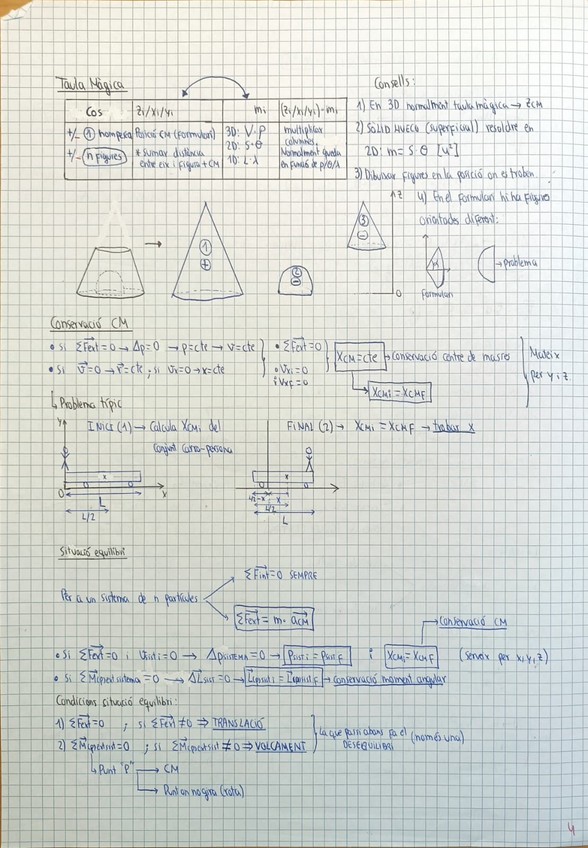 Taula Màgica
Cos | zi/xi/yi | mi | (zi/xi/yi)·mi
+/- ① Posició CM (Formulari) | 3D: V·ρ | multiplicar
+/- n figures | + sumar distància | 2D: S·σ | columnes.
entre eix i figura + CM | 1D: L·λ | Normalment queda
en funció de ρ/σ/λ
Consells:
1) En 3D normalment taula màgica → zCM
2) SÒLID HUECO (superficial) resoldre en
2D: m = S·σ [u²]
3) Dibuixar figures en la posició on es troben.
4) En el Formulari hi ha figures
orientades diferent:
① +
② -
③ -
Z
0
Formulari
→ Problema
Conservació CM
• Si ΣFext=0 → Δp=0 → p=cte → v=cte
• Si v=0 → r=cte ; si vx=0 → x=cte
• ΣFext=0
• vxi=0
i vxf=0
XCM=cte → Conservació centre de masses
XCMi = XCMf
Mateix
per y i z
↳ Problema típic
INICI (1) → Calcula XCMi del
conjunt carro-persona
FINAL (2) → XCMi = XCMf → trobar x
Y
x
0
x
L
L/2
x
L/2-x x
L/2
L
Situació equilibri
Per a un sistema de n partícules
ΣFint=0 SEMPRE
ΣFext = m·aCM
Conservació CM
• Si ΣFext=0 i vsisti=0 → ΔpSISTEMA=0 → psisti = psistf i XCMi=XCMf (serveix per x, y, z)
• Si ΣMp,ext sistema=0 → ΔLsist=0 → Lp,sisti = Lp,sistf → Conservació moment angular
Condicions situació equilibri:
1) ΣFext=0 ; si ΣFext ≠0 ⇒ TRANSLACIÓ
2) ΣMp,ext,sist=0 ; si ΣMp,ext,sist ≠0 ⇒ VOLCAMENT
La que passi abans fa el (només una)
DESEQUILIBRI
↳ Punt "P" → CM
→ Punt on no gira (rota)
4